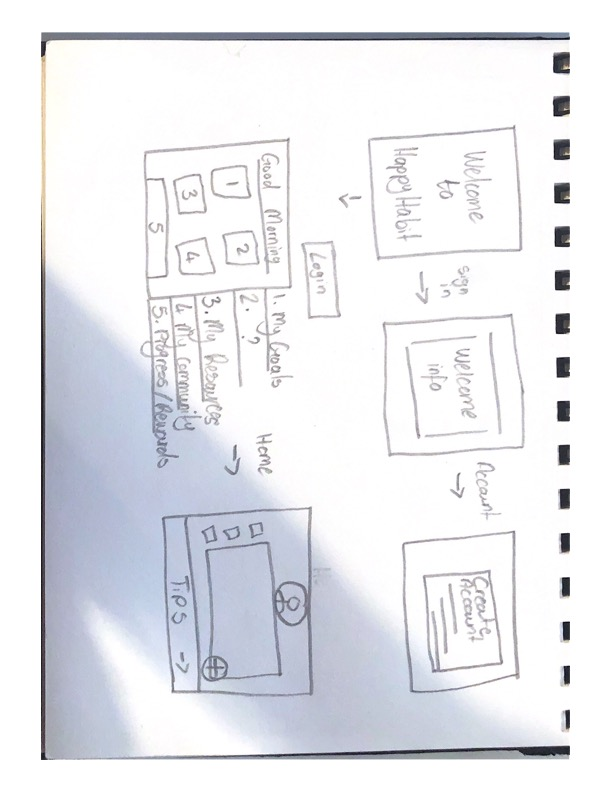 Welcome
to
Happy Habit
sign
in
Welcome
info
Account
Create
Account
Login
Good Morning
1
2
3
4
5
1. My Goals
2. ?
3. My Resources
4. My Community
5. Progress / Rewards
Home
TIPS